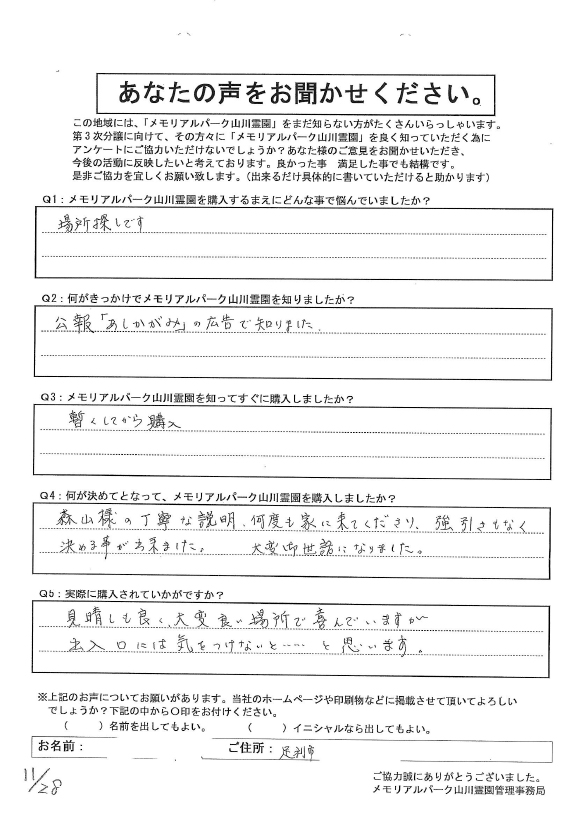 あなたの声をお聞かせください。
この地域には、「メモリアルパーク山川霊園」をまだ知らない方がたくさんいらっしゃいます。
第3次分譲に向けて、その方々に「メモリアルパーク山川霊園」を良く知っていただく為に
アンケートにご協力いただけないでしょうか？あなた様のご意見をお聞かせいただき、
今後の活動に反映したいと考えております。良かった事　満足した事でも結構です。
是非ご協力を宜しくお願い致します。（出来るだけ具体的に書いていただけると助かります）
Q1：メモリアルパーク山川霊園を購入するまえにどんな事で悩んでいましたか？
場所探しです
Q2：何がきっかけでメモリアルパーク山川霊園を知りましたか？
公報「あしかがみ」の広告で知りました。
Q3：メモリアルパーク山川霊園を知ってすぐに購入しましたか？
暫くしてから購入
Q4：何が決めてとなって、メモリアルパーク山川霊園を購入しましたか？
森山様の丁寧な説明、何度も家に来てくださり、強引さもなく
決める事が出来ました。　大変御世話になりました。
Q5：実際に購入されていかがですか？
見晴しも良く、大変良い場所で喜んでいますが
出入口には気をつけないと……と思います。
※上記のお声についてお願いがあります。当社のホームページや印刷物などに掲載させて頂いてよろしい
でしょうか？下記の中から○印をお付けください。
（　　）名前を出してもよい。　（　　）イニシャルなら出してもよい。
お名前：　ご住所：足利市
11/28
ご協力誠にありがとうございました。
メモリアルパーク山川霊園管理事務局